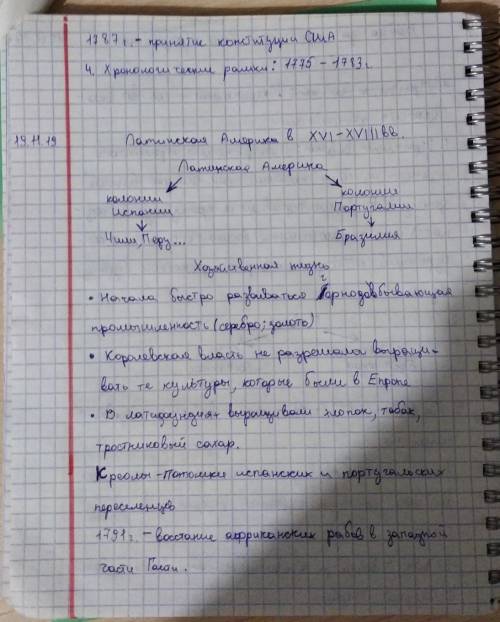 1787г. - принятие конституции США
4. Хронологические рамки: 1775 - 1783г
19.11.19
Латинская Америка в XVI-XVIII вв.
Латинская Америка
колонии колонии
Испании Португалии
Чили, Перу... Бразилия
Хозяйственная жизнь
• Начала быстро развиваться горнодобывающая
промышленность (серебро; золото)
• Королевская власть не разрешала выращи-
вать те культуры, которые были в Европе
• В латифундиях выращивали хлопок, табак,
тростниковый сахар.
Креолы - потомки испанских и португальских
переселенцев
1791г. - восстание африканских рабов в западной
части Гаити.